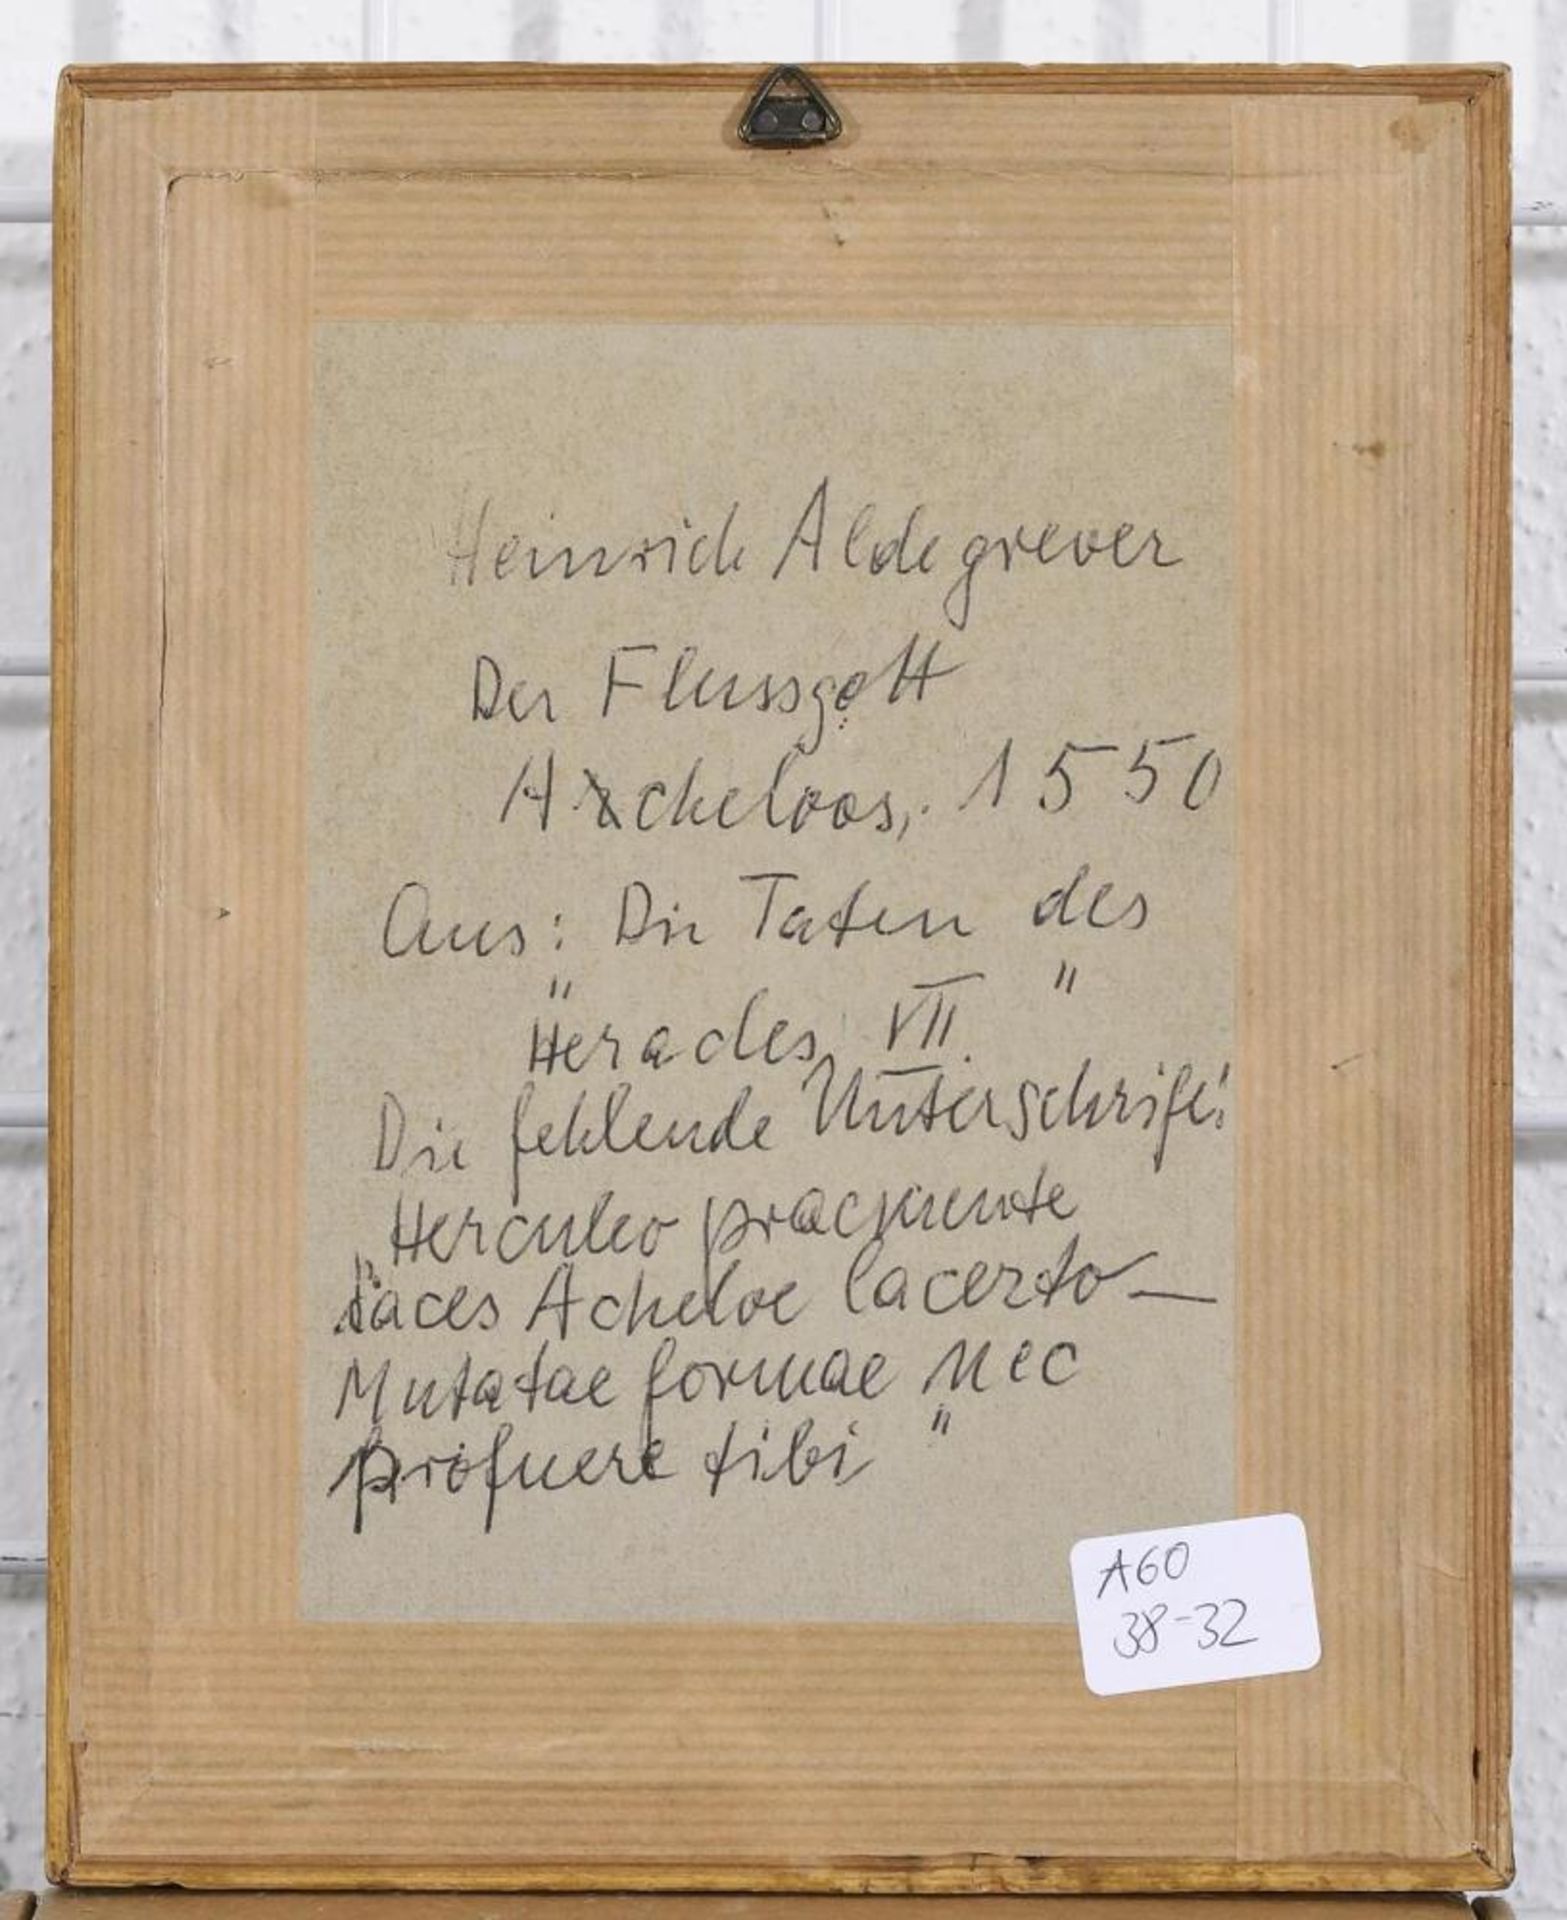 Heinrich Aldegrever
Der Flussgott
Acheloos, 1550
Aus: Die Taten des
" Heracles VII. "
Die fehlende Unterschrift:
Herculeo praemente
iaces Acheloe lacerto —
Mutatae formae nec
profuere tibi "
A60
38-32